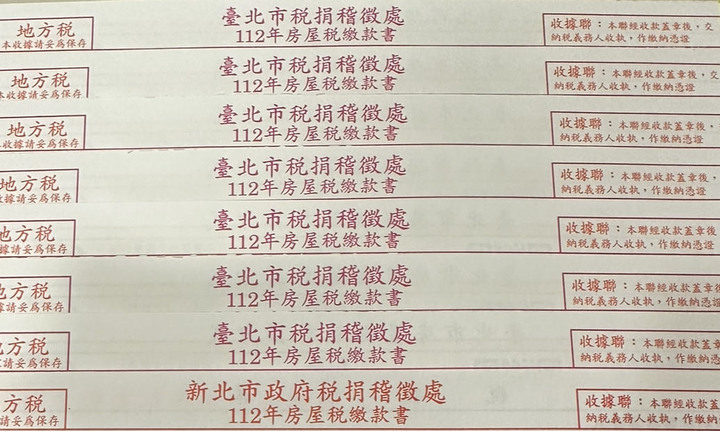 臺北市稅捐稽徵處
地方稅
112年房屋稅繳款書
收據聯：本聯經收款蓋章後，交
本收據請妥為保存
納稅義務人收執，作繳納憑證
臺北市稅捐稽徵處
地方稅
112年房屋稅繳款書
收據聯：本聯經收款蓋章後，交
本收據請妥為保存
納稅義務人收執，作繳納憑證
臺北市稅捐稽徵處
地方稅
112年房屋稅繳款書
收據聯：本聯經收款蓋章後
收據請妥為保存
納稅義務人收執，作繳納憑證
臺北市稅捐稽徵處
地方稅
112年房屋稅繳款書
收據聯：本聯經收款蓋章後
收據請妥為保存
納稅義務人收執，作繳納憑證
臺北市稅捐稽徵處
地方稅
112年房屋稅繳款書
收據聯：本聯經收款蓋章後
據請妥為保存
納稅義務人收執，作繳納憑
臺北市稅捐稽徵處
地方稅
112年房屋稅繳款書
收據聯：本聯經收款蓋章後
據請妥為保存
納稅義務人收執，作繳納憑
臺北市稅捐稽徵處
方稅
112年房屋稅繳款書
收據聯：本聯經收款蓋章
請妥為保存
納稅義務人收執，作繳納憑
新北市政府稅捐稽徵處
方稅
112年房屋稅繳款書
收據聯：本聯經收款蓋
請妥為保存
納稅義務人收執，作繳納